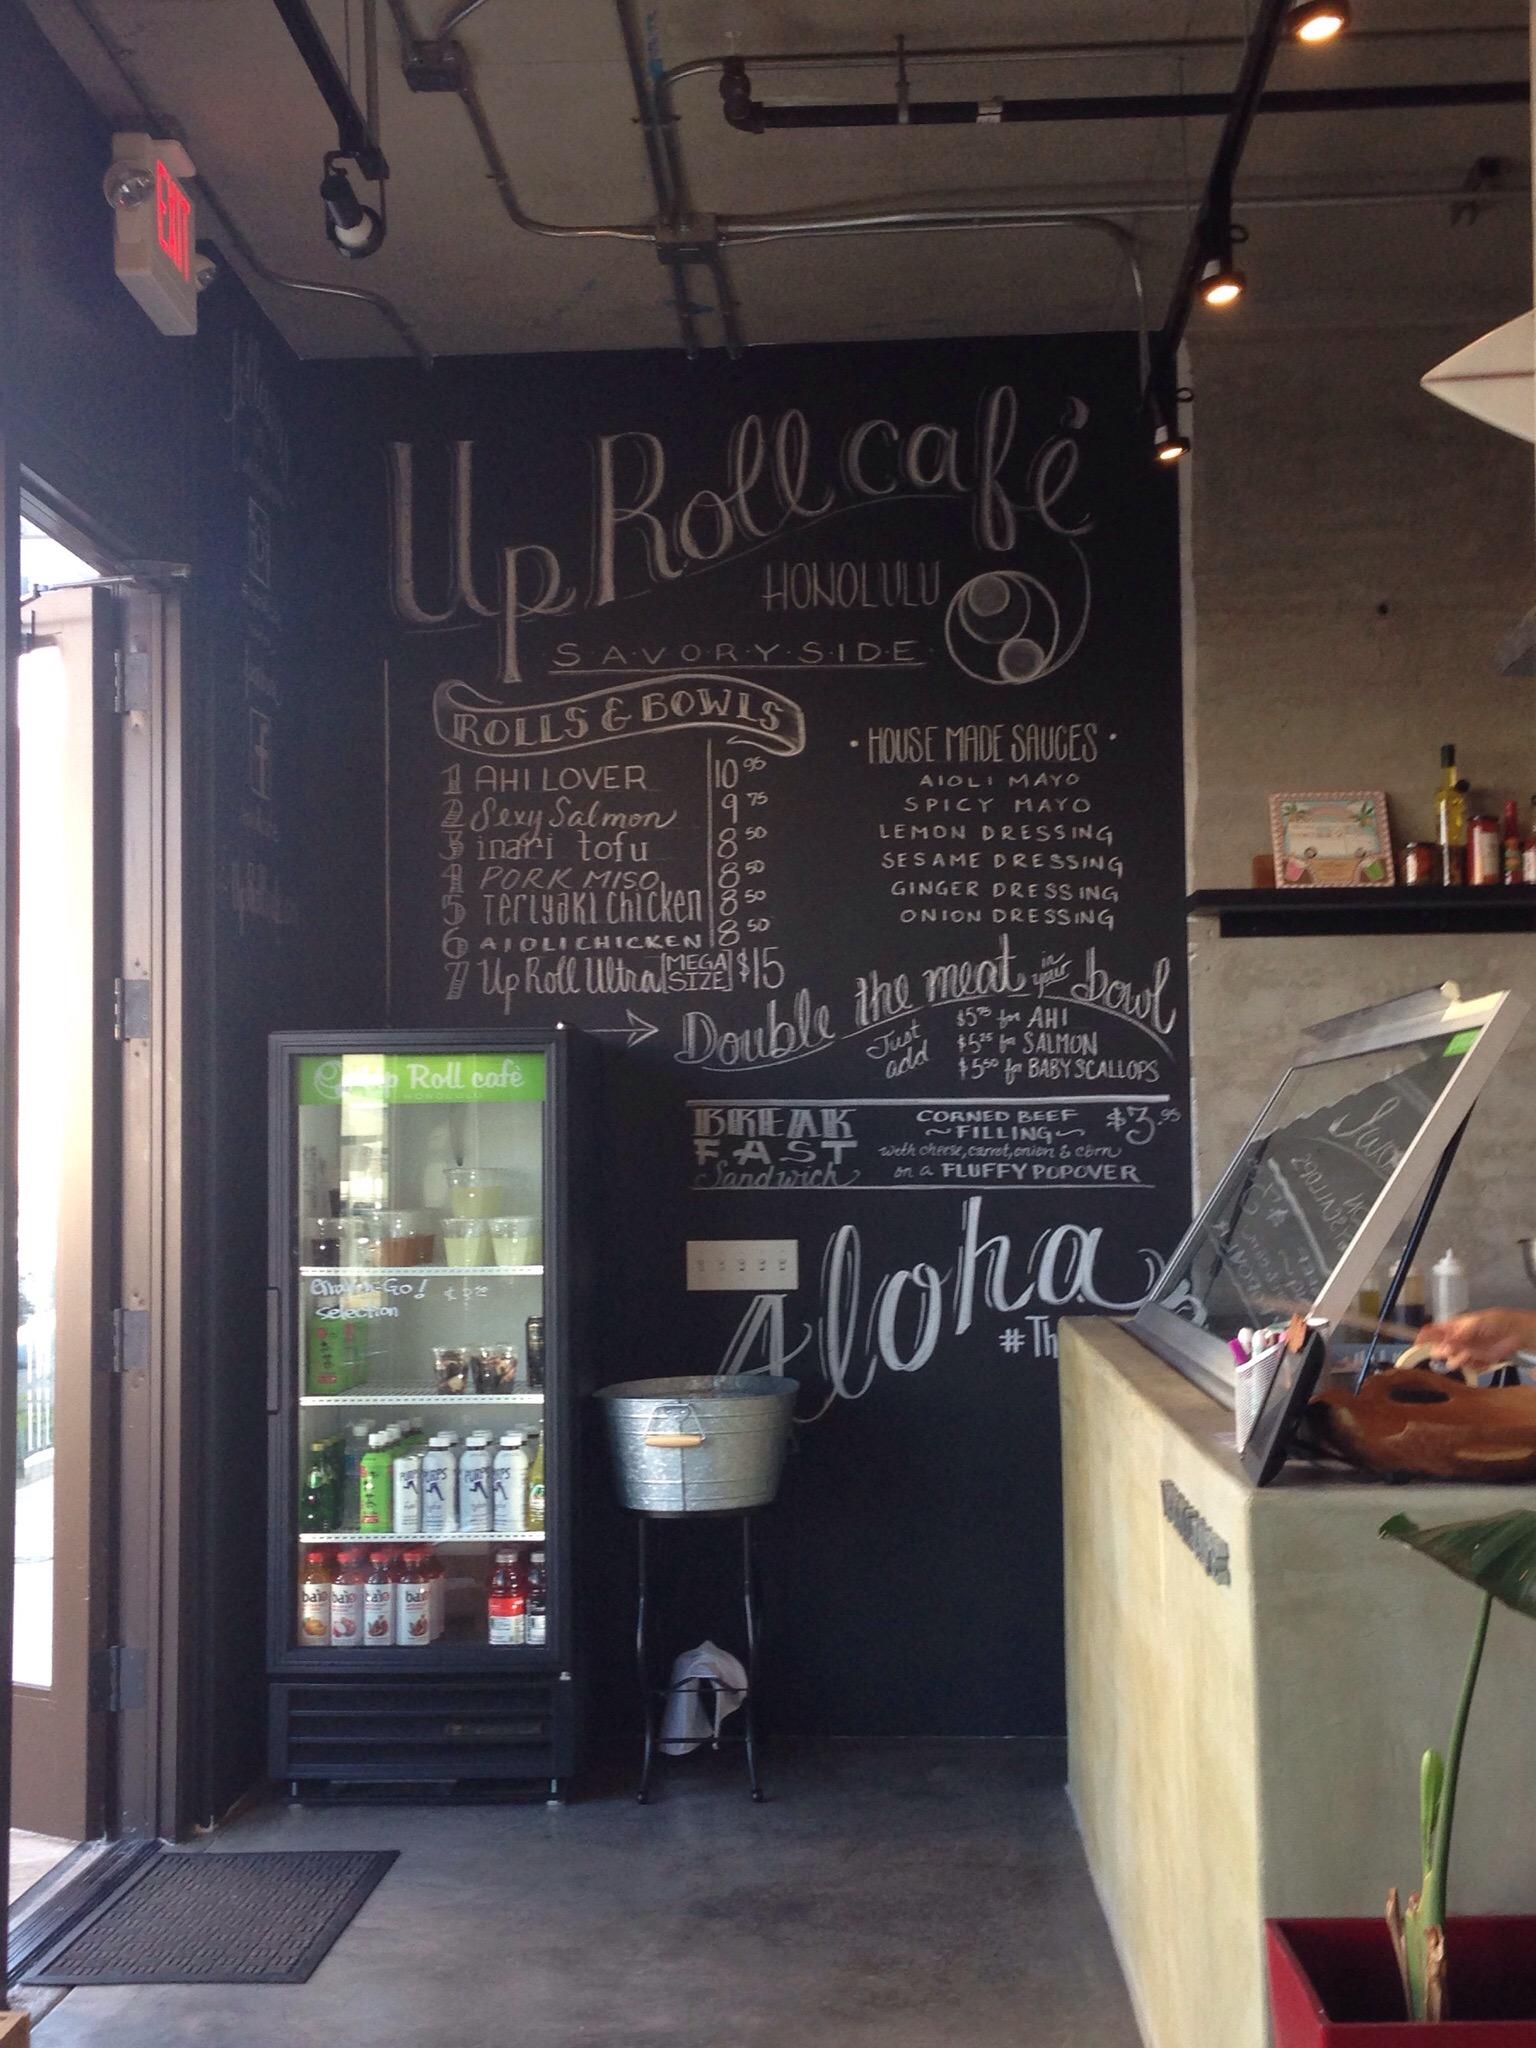 EXIT
Up Roll café
HONOLULU
S·A·V·O·R·Y·S·I·D·E
ROLLS & BOWLS
1 AHI LOVER 10 95
2 Sexy Salmon 9 75
3 inari tofu 8 50
4 PORK MISO 8 50
5 Teriyaki Chicken 8 50
6 AIOLI CHICKEN 8 50
7 Up Roll Ultra [MEGA SIZE] $15
• HOUSE MADE SAUCES •
AIOLI MAYO
SPICY MAYO
LEMON DRESSING
SESAME DRESSING
GINGER DRESSING
ONION DRESSING
Double the meat in your bowl
Just add
$5 75 for AHI
$5 25 for SALMON
$5 50 for BABY SCALLOPS
BREAK
FAST
Sandwich
CORNED BEEF
~FILLING~
with cheese, carrot, onion & corn
on a FLUFFY POPOVER
$3.95
Aloha
#Th
Up Roll cafè
HONOLULU
Go!
selection
PURPS
PURPS
PURPS
PURPS
bai
bai
bai
bai